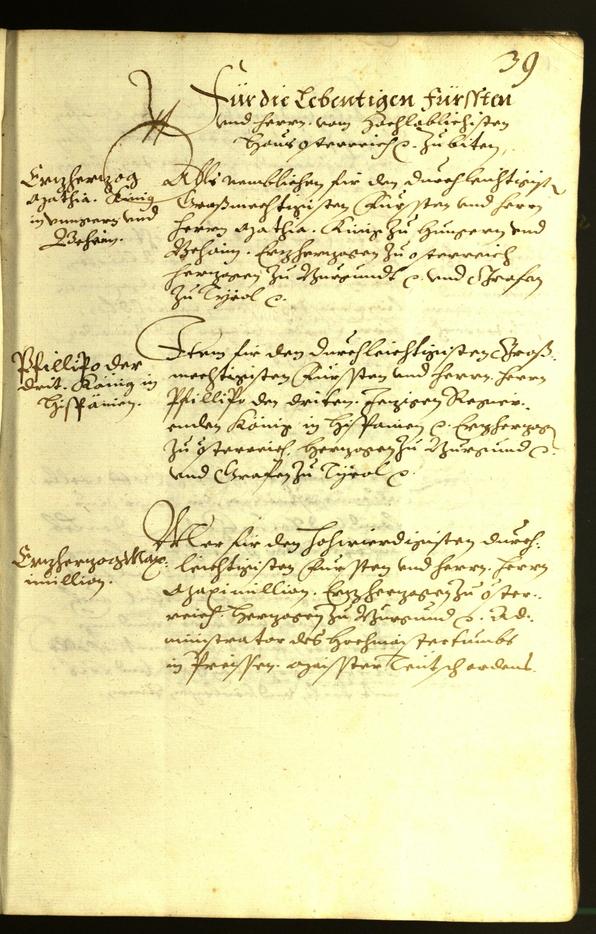 39
Für die Lebentigen Fürssten
und herrn. vom Hochlöblichisten
Haus osterreich zu biten.
Erzherzog
Mathia. König
in Vnngern und
Behaim.
Alls nemblichen für den durchleichtigist
Großmechtigisten Fürsten und herrn
herrn Mathia. König zu Hungern und
Behaim. Erzherzogen zu osterreich
herzogen zu Burgundt und Grafen
zu Tyrol
Phillipo der
drit. König in
Hispänien.
Item für den durchleichtigisten Groß-
mechtigisten Fürsten und herrn. herrn
Phillipo den driten. Jezigen Regier-
enden König in Hispanien Erzherzog
zu österreich. herzogen zu Burgund
und Grafen zu Tyrol
Erzherzog Max:
imillion.
Mer für den hochwierdigisten durch:
leichtigisten Fürsten und herrn. herrn
Maximillion. Erzherzogen zu öster-
reich. herzogen zu Burgund Ad:
ministrator des Hochmaistertumbs
in Preissen. Maisster Teutsch ordens